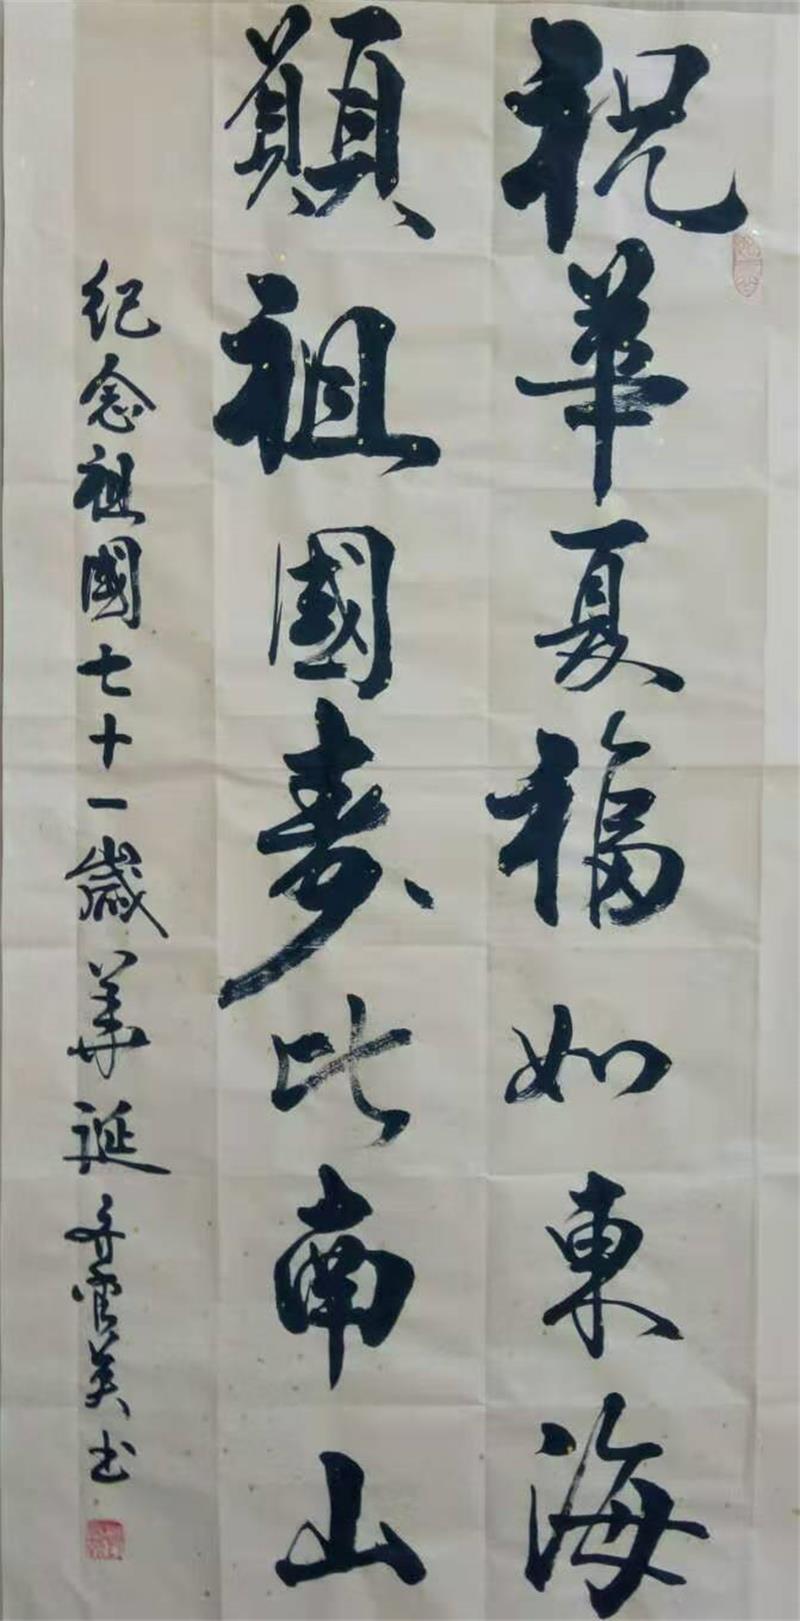 祝華夏福如東海
願祖國壽比南山
纪念祖國七十一歲華誕 齐雪英书